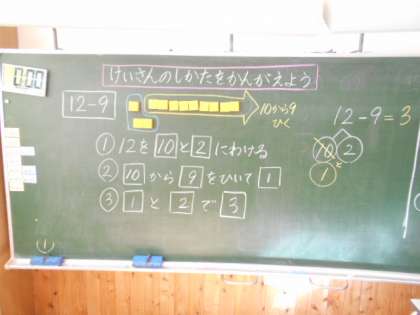 けいさんのしかたをかんがえよう
12-9
10から9
ひく
12-9=3
10 2
と
1
①12を10と2にわける
②10から9をひいて1
③1と2で3
①